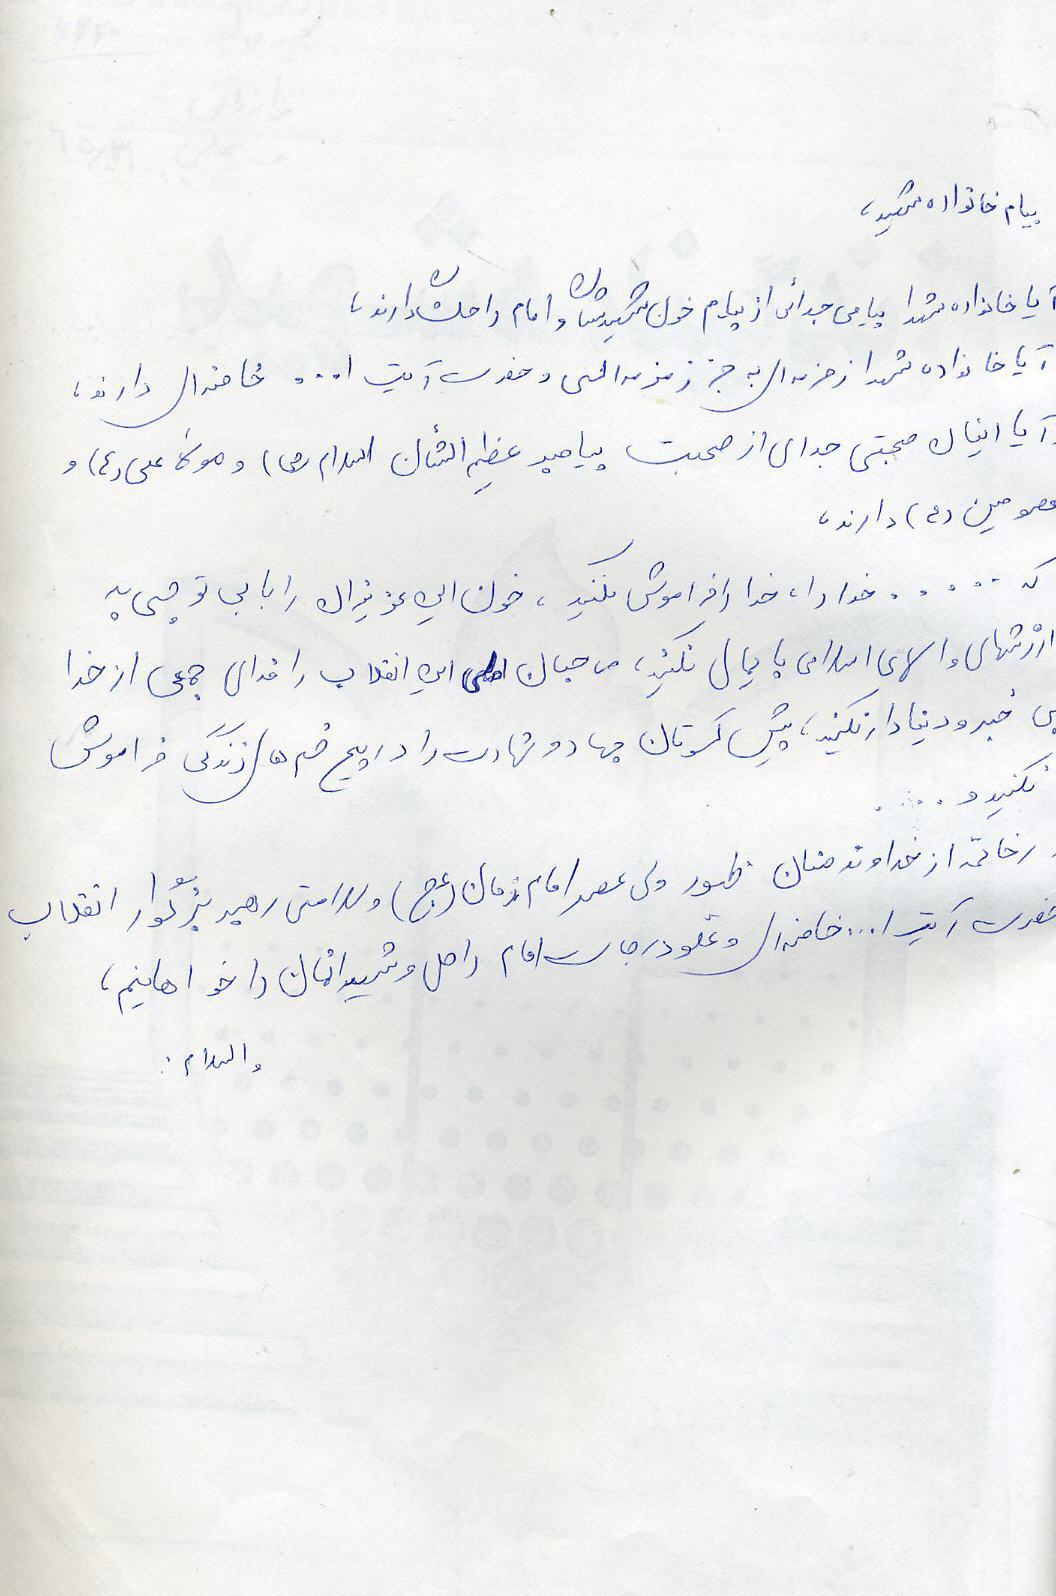 پیام خانواده شهید،
آیا خانواده شهدا پیامی جدائی از پیام خون شهیدشان و امام راحلشان دارند،
آیا خانواده شهدا زمزمه‌ای به جز زمزمه الهی و حضرت آیت ا... خامنه‌ای دارند،
آیا اینان صحبتی جدای از صحبت پیامبر عظیم الشأن اسلام (ص) و مولا علی (ع) و
معصومین (ع) دارند،
که ..... خدا را، خدا را فراموش نکنید، خون این عزیزان را با بی توجهی به
ارزشهای والای اسلامی پایمال نکنید، صاحبان اصلی این انقلاب را فدای جمعی از خدا
بی خبر و دنیادار نکنید، پیش کسوتان جهاد و شهادت را در پیچ و خم های زندگی فراموش
نکنید و ....
در خاتمه از خداوند منان ظهور ولی عصر امام زمان (عج) و سلامتی رهبر بزرگوار انقلاب
حضرت آیت ا... خامنه‌ای و علو درجات امام راحل و شهیدانمان را خواهانیم،
والسلام: